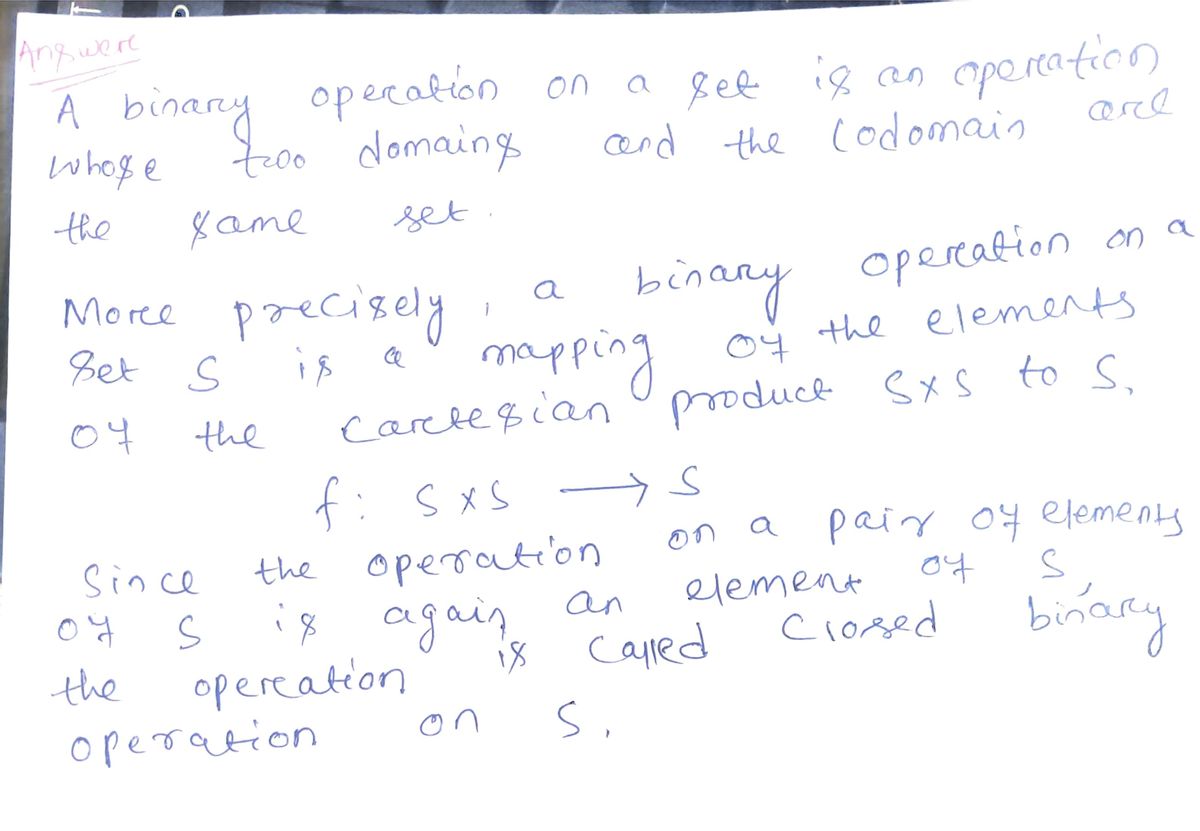 Answere
A binary operation on a set is an operation
whose two domains and the codomain are
the same set.
More precisely, a binary operation on a
set S is a mapping of the elements
of the cartesian product S×S to S.
f: S×S → S
Since the operation on a pair of elements
of S is again an element of S,
the operation is called closed binary
operation on S.